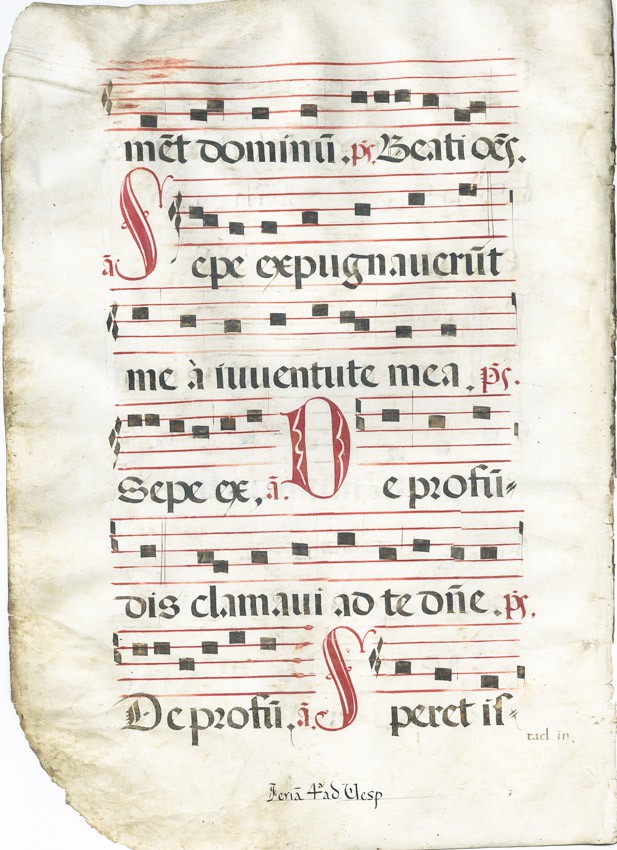 mēt dominū. ps. Beati oēs.
ā Sepe expugnauerūt
me à iuuentute mea. ps.
Sepe ex, ā. De profū=
dis clamaui ad te dn̄e. ps.
De profū. ā. Speret is=
rael in.
Feriā 4ª ad Vesp